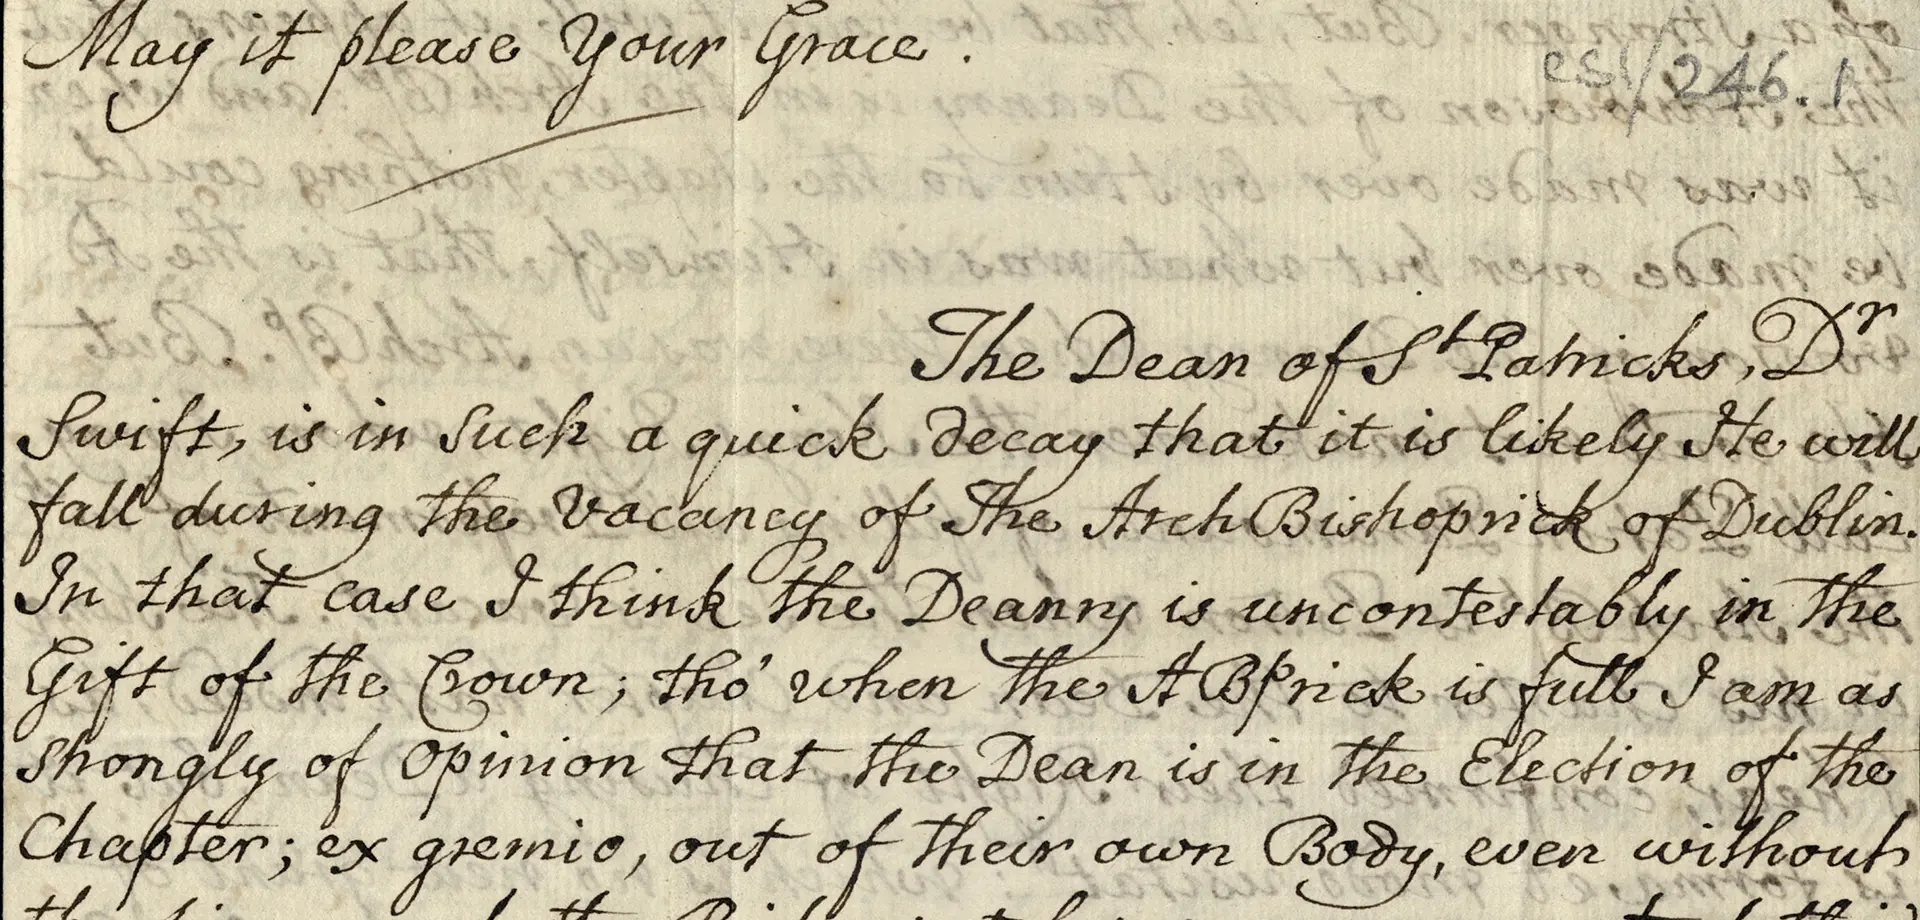 May it please Your Grace.
esl/246.1
The Dean of St Patricks, Dr
Swift, is in such a quick decay that it is likely He will
fall during the Vacancy of The ArchBishoprick of Dublin.
In that case I think the Deanry is uncontestably in the
Gift of the Crown; tho' when the ABprick is full I am as
strongly of Opinion that the Dean is in the Election of the
Chapter; ex gremio, out of their own Body, even without